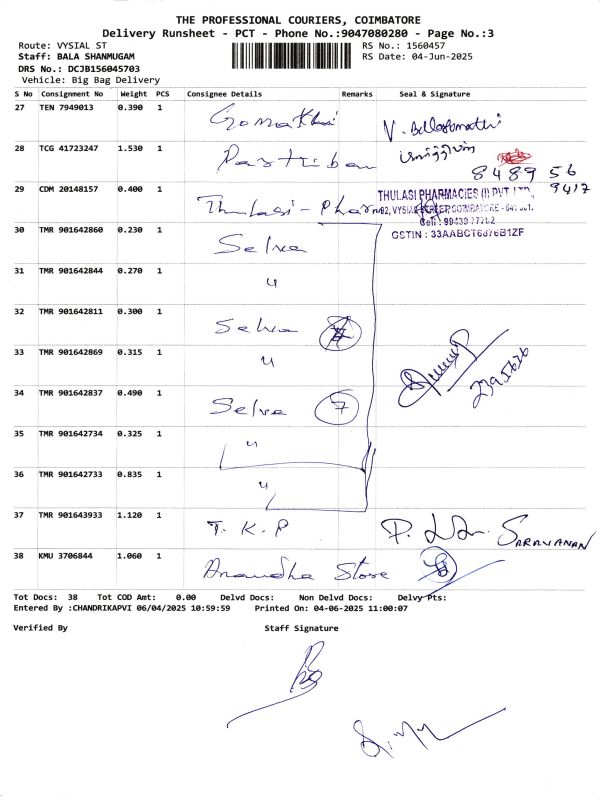 THE PROFESSIONAL COURIERS, COIMBATORE
Delivery Runsheet - PCT - Phone No.:9047080280 - Page No.:3
Route: VYSIAL ST RS No.: 1560457
Staff: BALA SHANMUGAM RS Date: 04-Jun-2025
DRS No.: DCJB156045703
Vehicle: Big Bag Delivery
S No Consignment No Weight PCS Consignee Details Remarks Seal & Signature
27 TEN 7949013 0.390 1
28 TCG 41723247 1.530 1 Partriban 8489 56
9417
29 CDM 20148157 0.400 1 Thulasi - Pharm
THULASI PHARMACIES (I) PVT. LTD.,
30 TMR 901642860 0.230 1 Selva
31 TMR 901642844 0.270 1 "
32 TMR 901642811 0.300 1 Selva
33 TMR 901642869 0.315 1 "
34 TMR 901642837 0.490 1 Selva 7
35 TMR 901642734 0.325 1 "
36 TMR 901642733 0.835 1 "
37 TMR 901643933 1.120 1 T. K. P SARAVANAN
38 KMU 3706844 1.060 1 Anandha Store
Tot Docs: 38 Tot COD Amt: 0.00 Delvd Docs: Non Delvd Docs: Delvy Pts:
Entered By :CHANDRIKAPVI 06/04/2025 10:59:59 Printed On: 04-06-2025 11:00:07
Verified By Staff Signature